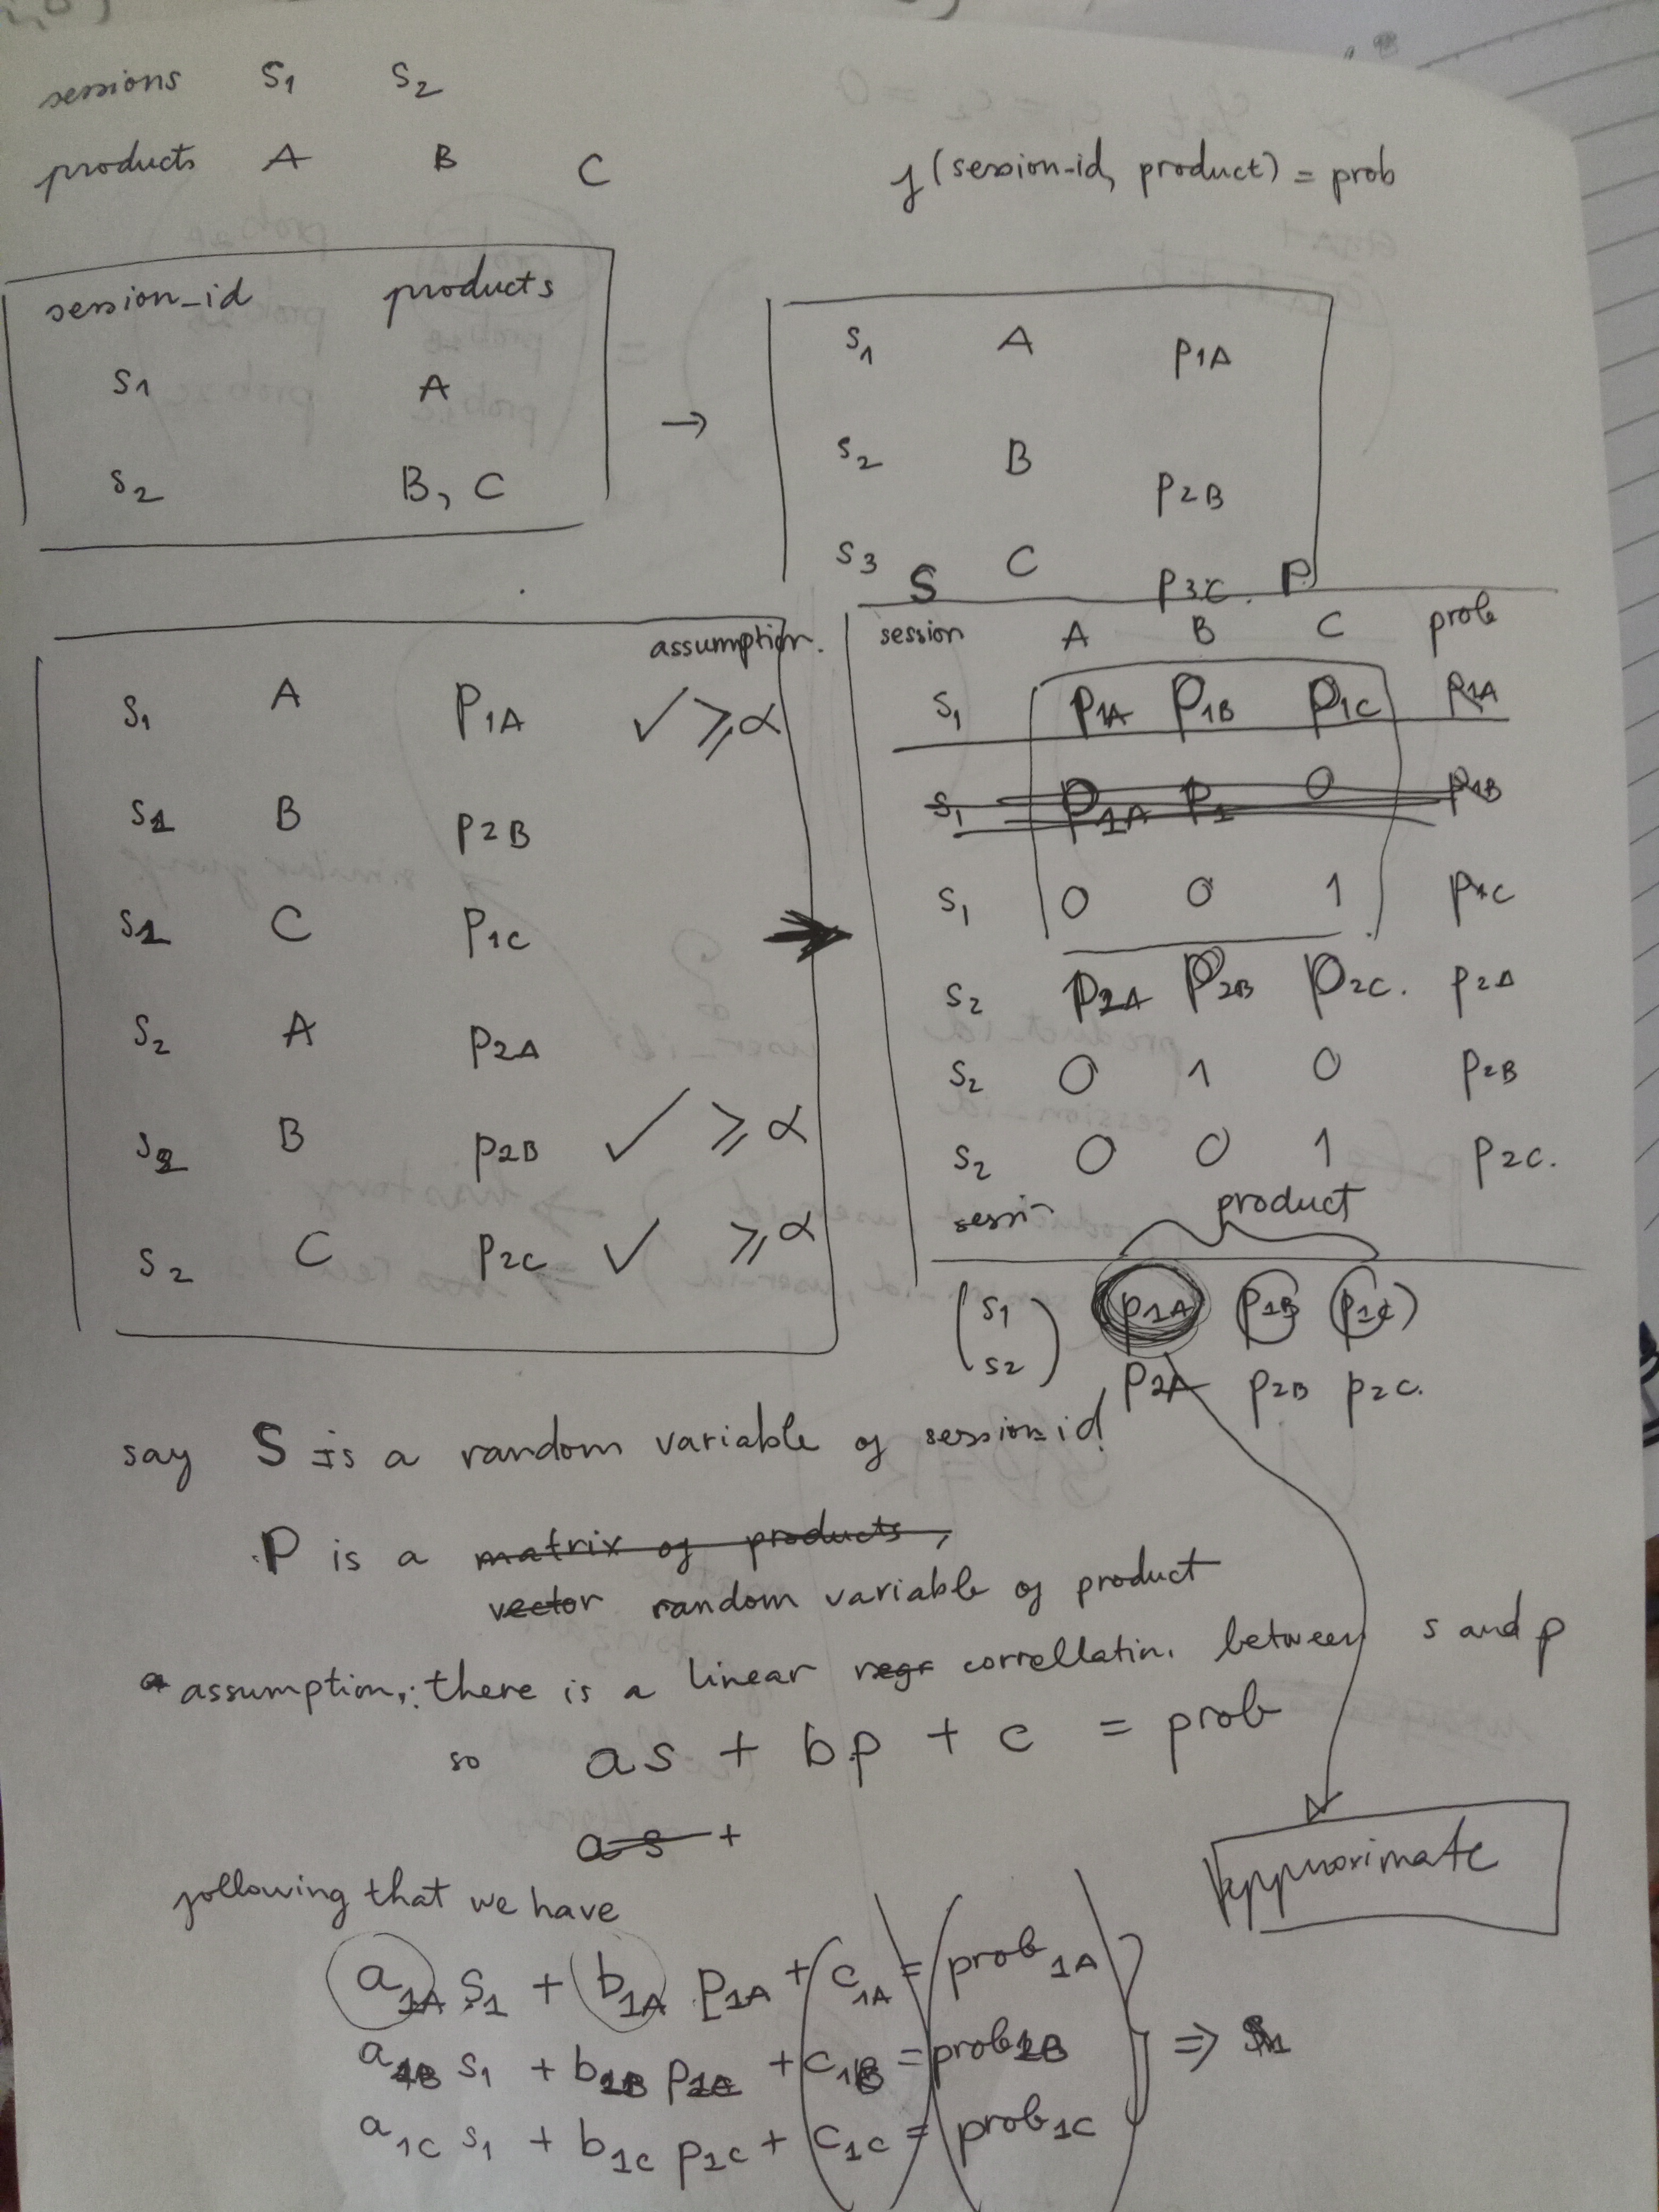 sessions S1 S2
products A B C
f(session-id, product) = prob
session_id products
S1 A
S2 B, C
→
S1 A P1A
S2 B P2B
S3 C P3C
assumption.
S1 A P1A ✓ ⩾ α
S1 B P2B
S1 C P1C
S2 A P2A
S2 B P2B ✓ ⩾ α
S2 C P2C ✓ ⩾ α
S P
session A B C prob
S1 P1A P1B P1C P1A
S1 P1A P1 0 P1B
S1 0 0 1 P1C
S2 P2A P2B P2C. P2A
S2 0 1 0 P2B
S2 0 0 1 P2C.
sessi product
S1 P1A P1B P1C
S2 P2A P2B P2C.
say S is a random variable of session id
P is a matrix of products,
vector random variable of product
assumption: there is a linear regr correllatin. between s and p
so as + bp + c = prob
as +
Approximate
following that we have
a1A S1 + b1A P1A + c1A = prob1A
a1B S1 + b1B + c1B = prob1B
a1C S1 + b1C P1C + c1C = prob1C
⇒